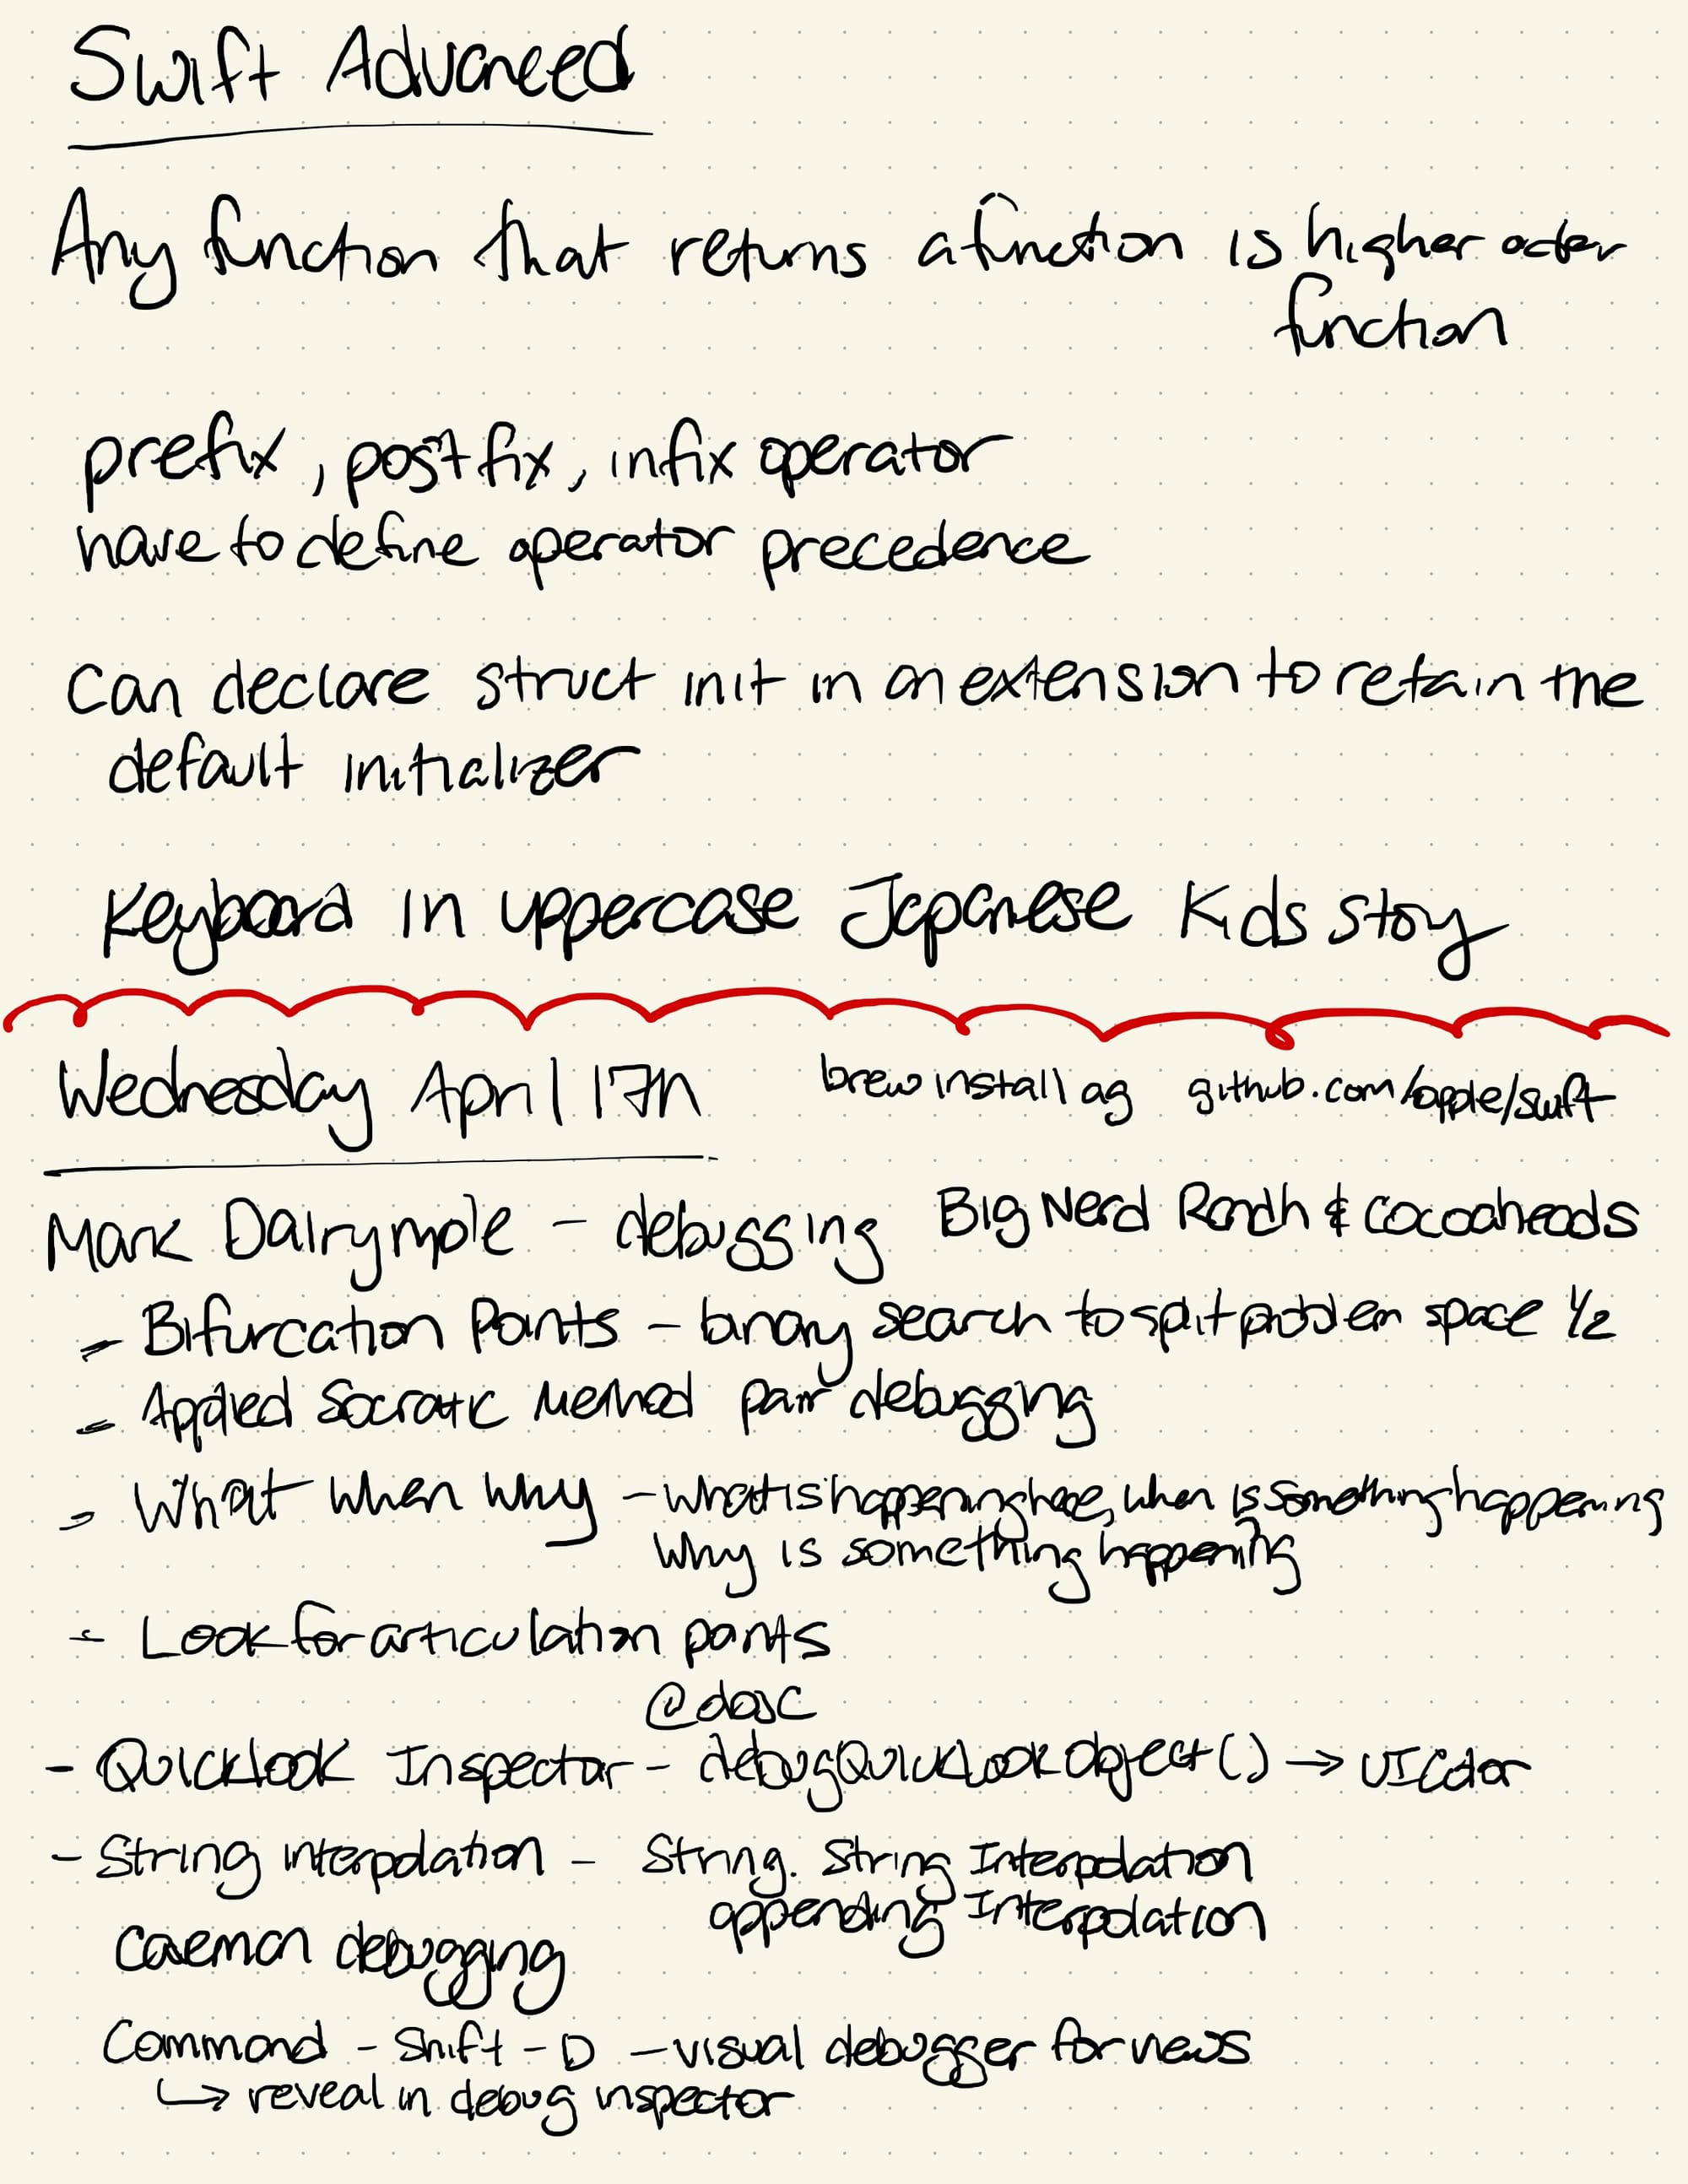 Swift Advanced
Any function that returns a function is higher order
function
prefix, postfix, infix operator
have to define operator precedence
Can declare struct init in an extension to retain the
default initializer
Keyboard in uppercase Japanese Kids stoy
Wednesday April 17th brew install ag github.com/apple/swift
Mark Dalrymple - debugging Big Nerd Ranch & cocoaheads
- Bifurcation Points - binary search to split problem space 1/2
- Applied Socratic Method pair debugging
- What when why - what is happening here, when is something happening
Why is something happening
- Look for articulation points
@objc
- QuickLook Inspector - debugQuickLookObject() → UIColor
- String interpolation - String. String Interpolation
appending Interpolation
Caveman debugging
Command - Shift - D - visual debugger for views
↳ reveal in debug inspector